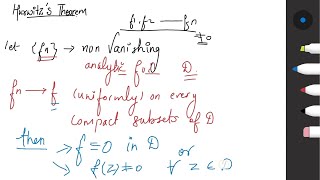 Hurwitz's Theorem
f1 . f2 — fn
≠0
let {fn} → non vanishing
analytic f o D D.
fn → f (uniformly) on every
compact subsets of D
then → f ≡ 0 in D or
→ f(z) ≠ 0 ∀ z ∈ D